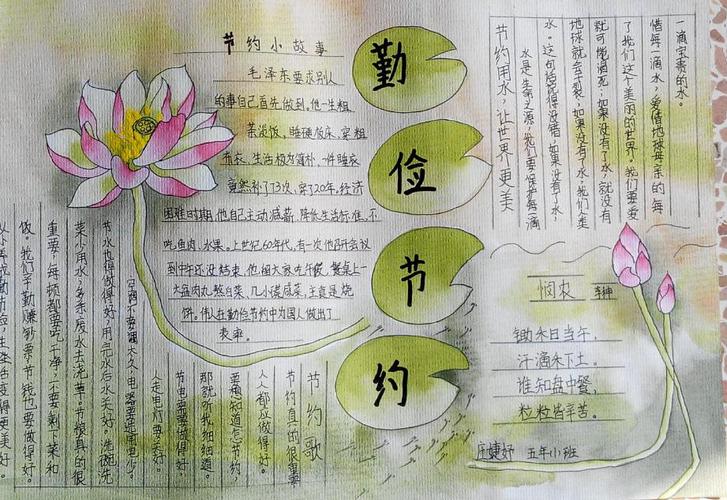 勤
俭
节
约
节约小故事
毛泽东要求别人
的事自己首先做到,他一生粗
茶淡饭,睡硬板床,穿粗
布衣,生活极为简朴,一件睡衣
竟然补了73次,穿了20年,经济
困难时期,他自己主动减薪、降低生活标准,不
吃鱼肉、水果。上世纪60年代,有一次他召开会议
到中午还没结束,他留大家吃午饭,餐桌上一
大盆肉丸熬白菜、几小碟咸菜,主食是烧
饼。伟人在勤俭节约中为国人做出了
表率。
节约用水,让世界更美
水是生命之源,我们要保护每一滴
水。这句话说得没错,如果没有了水,
地球就会干裂,如果没有了水,我们人类
就可能渴死,如果没有了水,就没有
了我们这个美丽的世界。我们要爱
惜每一滴水,爱惜地球母亲的每
一滴宝贵的水。
悯农
锄禾日当午,
汗滴禾下土。
谁知盘中餐,
粒粒皆辛苦。
五年小班
节约歌
节约真的很重要
人人都应做得好。
要想知道怎节约,
那就听我细细道。
节电需要做得好,
人走电灯要关好。
节水也得做得好,用完水后水关好。洗碗洗
菜少用水,多余废水去浇草。节粮真的很
重要,每顿都要吃干净,不要剩下菜和
做。我们辛勤赚钞票,节钱也要做得好。